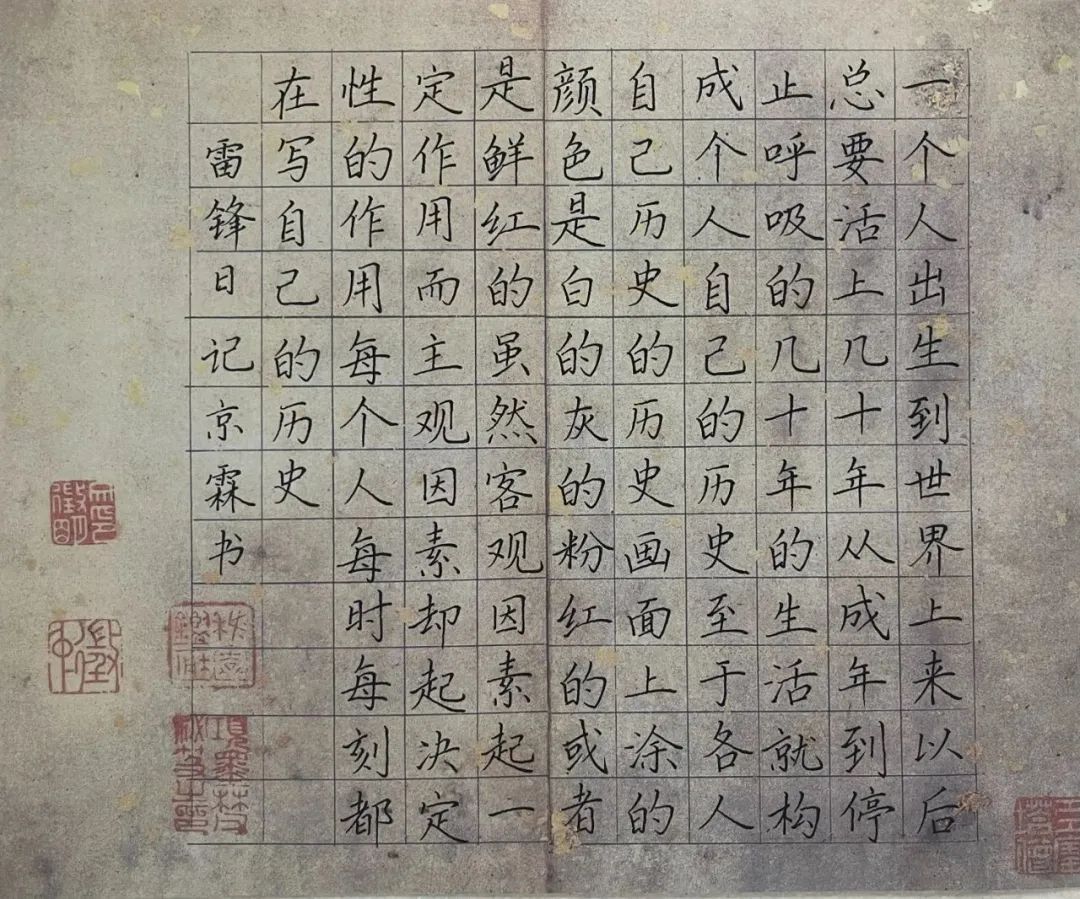 一个人出生到世界上来以后
总要活上几十年从成年到停
止呼吸的几十年的生活就构
成个人自己的历史至于各人
自己历史的历史画面上涂的
颜色是白的灰的粉红的或者
是鲜红的虽然客观因素起一
定作用而主观因素却起决定
性的作用每个人每时每刻都
在写自己的历史
雷锋日记京霖书